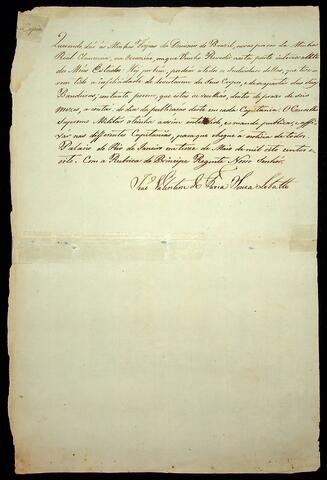 Copia
Querendo dar ás Minhas Tropas do Dominio do Brasil, novas provas da Minha
Real Clemencia, na occasião, em que Tenho Rezidido nesta parte interessante
dos Meus Estados: Hey por bem, perdoar a todos os Individuos dellas, que hou-
verem tido a infelicidade de desertarem de Seus Corpos, e desampararem as Suas
Bandeiras, com tanto porem, que estes se recolhão, dentro do prazo de seis
mezes, a contar do dia da publicação deste em cada Capitania. O Conselho
Supremo Militar o tenha assim entendido, e o mande publicar, e affi-
xar nas differentes Capitanias, para que chegue á noticia de todos.
Palacio do Rio de Janeiro em treze de Maio de mil oito centos e
oito. Com a Rubrica do Principe Regente Nosso Senhor.
José Valentim de Faria Souza Lobatto